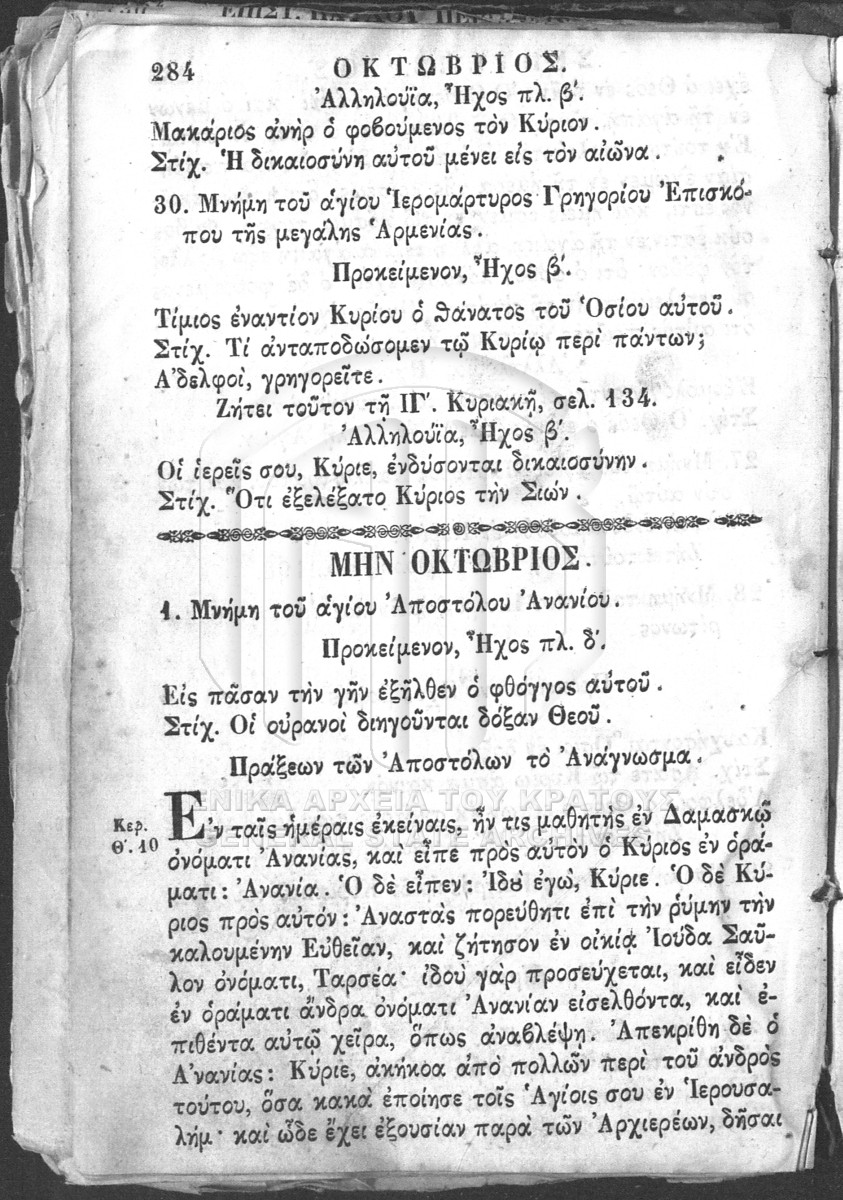 284 ΟΚΤΩΒΡΙΟΣ.
Ἀλληλούϊα, Ἦχος πλ. β΄.
Μακάριος ἀνὴρ ὁ φοβούμενος τὸν Κύριον.
Στίχ. Ἡ δικαιοσύνη αὐτοῦ μένει εἰς τὸν αἰῶνα.
30. Μνήμη τοῦ ἁγίου Ἱερομάρτυρος Γρηγορίου Ἐπισκό-
που τῆς μεγάλης Ἀρμενίας.
Προκείμενον, Ἦχος β΄.
Τίμιος ἐναντίον Κυρίου ὁ θάνατος τοῦ Ὁσίου αὐτοῦ.
Στίχ. Τί ἀνταποδώσομεν τῷ Κυρίῳ περὶ πάντων;
Ἀδελφοὶ, γρηγορεῖτε.
Ζήτει τοῦτον τῇ ΙΓ΄. Κυριακῇ, σελ. 134.
Ἀλληλούϊα, Ἦχος β΄.
Οἱ ἱερεῖς σου, Κύριε, ἐνδύσονται δικαιοσύνην.
Στίχ. Ὅτι ἐξελέξατο Κύριος τὴν Σιών.
ΜΗΝ ΟΚΤΩΒΡΙΟΣ.
1. Μνήμη τοῦ ἁγίου Ἀποστόλου Ἀνανίου.
Προκείμενον, Ἦχος πλ. δ΄.
Εἰς πᾶσαν τὴν γῆν ἐξῆλθεν ὁ φθόγγος αὐτοῦ.
Στίχ. Οἱ οὐρανοὶ διηγοῦνται δόξαν Θεοῦ.
Πράξεων τῶν Ἀποστόλων τὸ Ἀνάγνωσμα.
ΓΕΝΙΚΑ ΑΡΧΕΙΑ ΤΟΥ ΚΡΑΤΟΥΣ
GENERAL STATE ARCHIVES
Κεφ.
Θ΄. 10
Ἐν ταῖς ἡμέραις ἐκείναις, ἦν τις μαθητὴς ἐν Δαμασκῷ
ὀνόματι Ἀνανίας, καὶ εἶπε πρὸς αὐτὸν ὁ Κύριος ἐν ὁρά-
ματι: Ἀνανία. Ὁ δὲ εἶπεν: Ἰδοὺ ἐγὼ, Κύριε. Ὁ δὲ Κύ-
ριος πρὸς αὐτόν: Ἀναστὰς πορεύθητι ἐπὶ τὴν ῥύμην τὴν
καλουμένην Εὐθεῖαν, καὶ ζήτησον ἐν οἰκίᾳ Ἰούδα Σαῦ-
λον ὀνόματι, Ταρσέα· ἰδοὺ γὰρ προσεύχεται, καὶ εἶδεν
ἐν ὁράματι ἄνδρα ὀνόματι Ἀνανίαν εἰσελθόντα, καὶ ἐ-
πιθέντα αὐτῷ χεῖρα, ὅπως ἀναβλέψῃ. Ἀπεκρίθη δὲ ὁ
Ἀνανίας: Κύριε, ἀκήκοα ἀπὸ πολλῶν περὶ τοῦ ἀνδρὸς
τούτου, ὅσα κακὰ ἐποίησε τοῖς Ἁγίοις σου ἐν Ἱερουσα-
λήμ· καὶ ὧδε ἔχει ἐξουσίαν παρὰ τῶν Ἀρχιερέων, δῆσαι